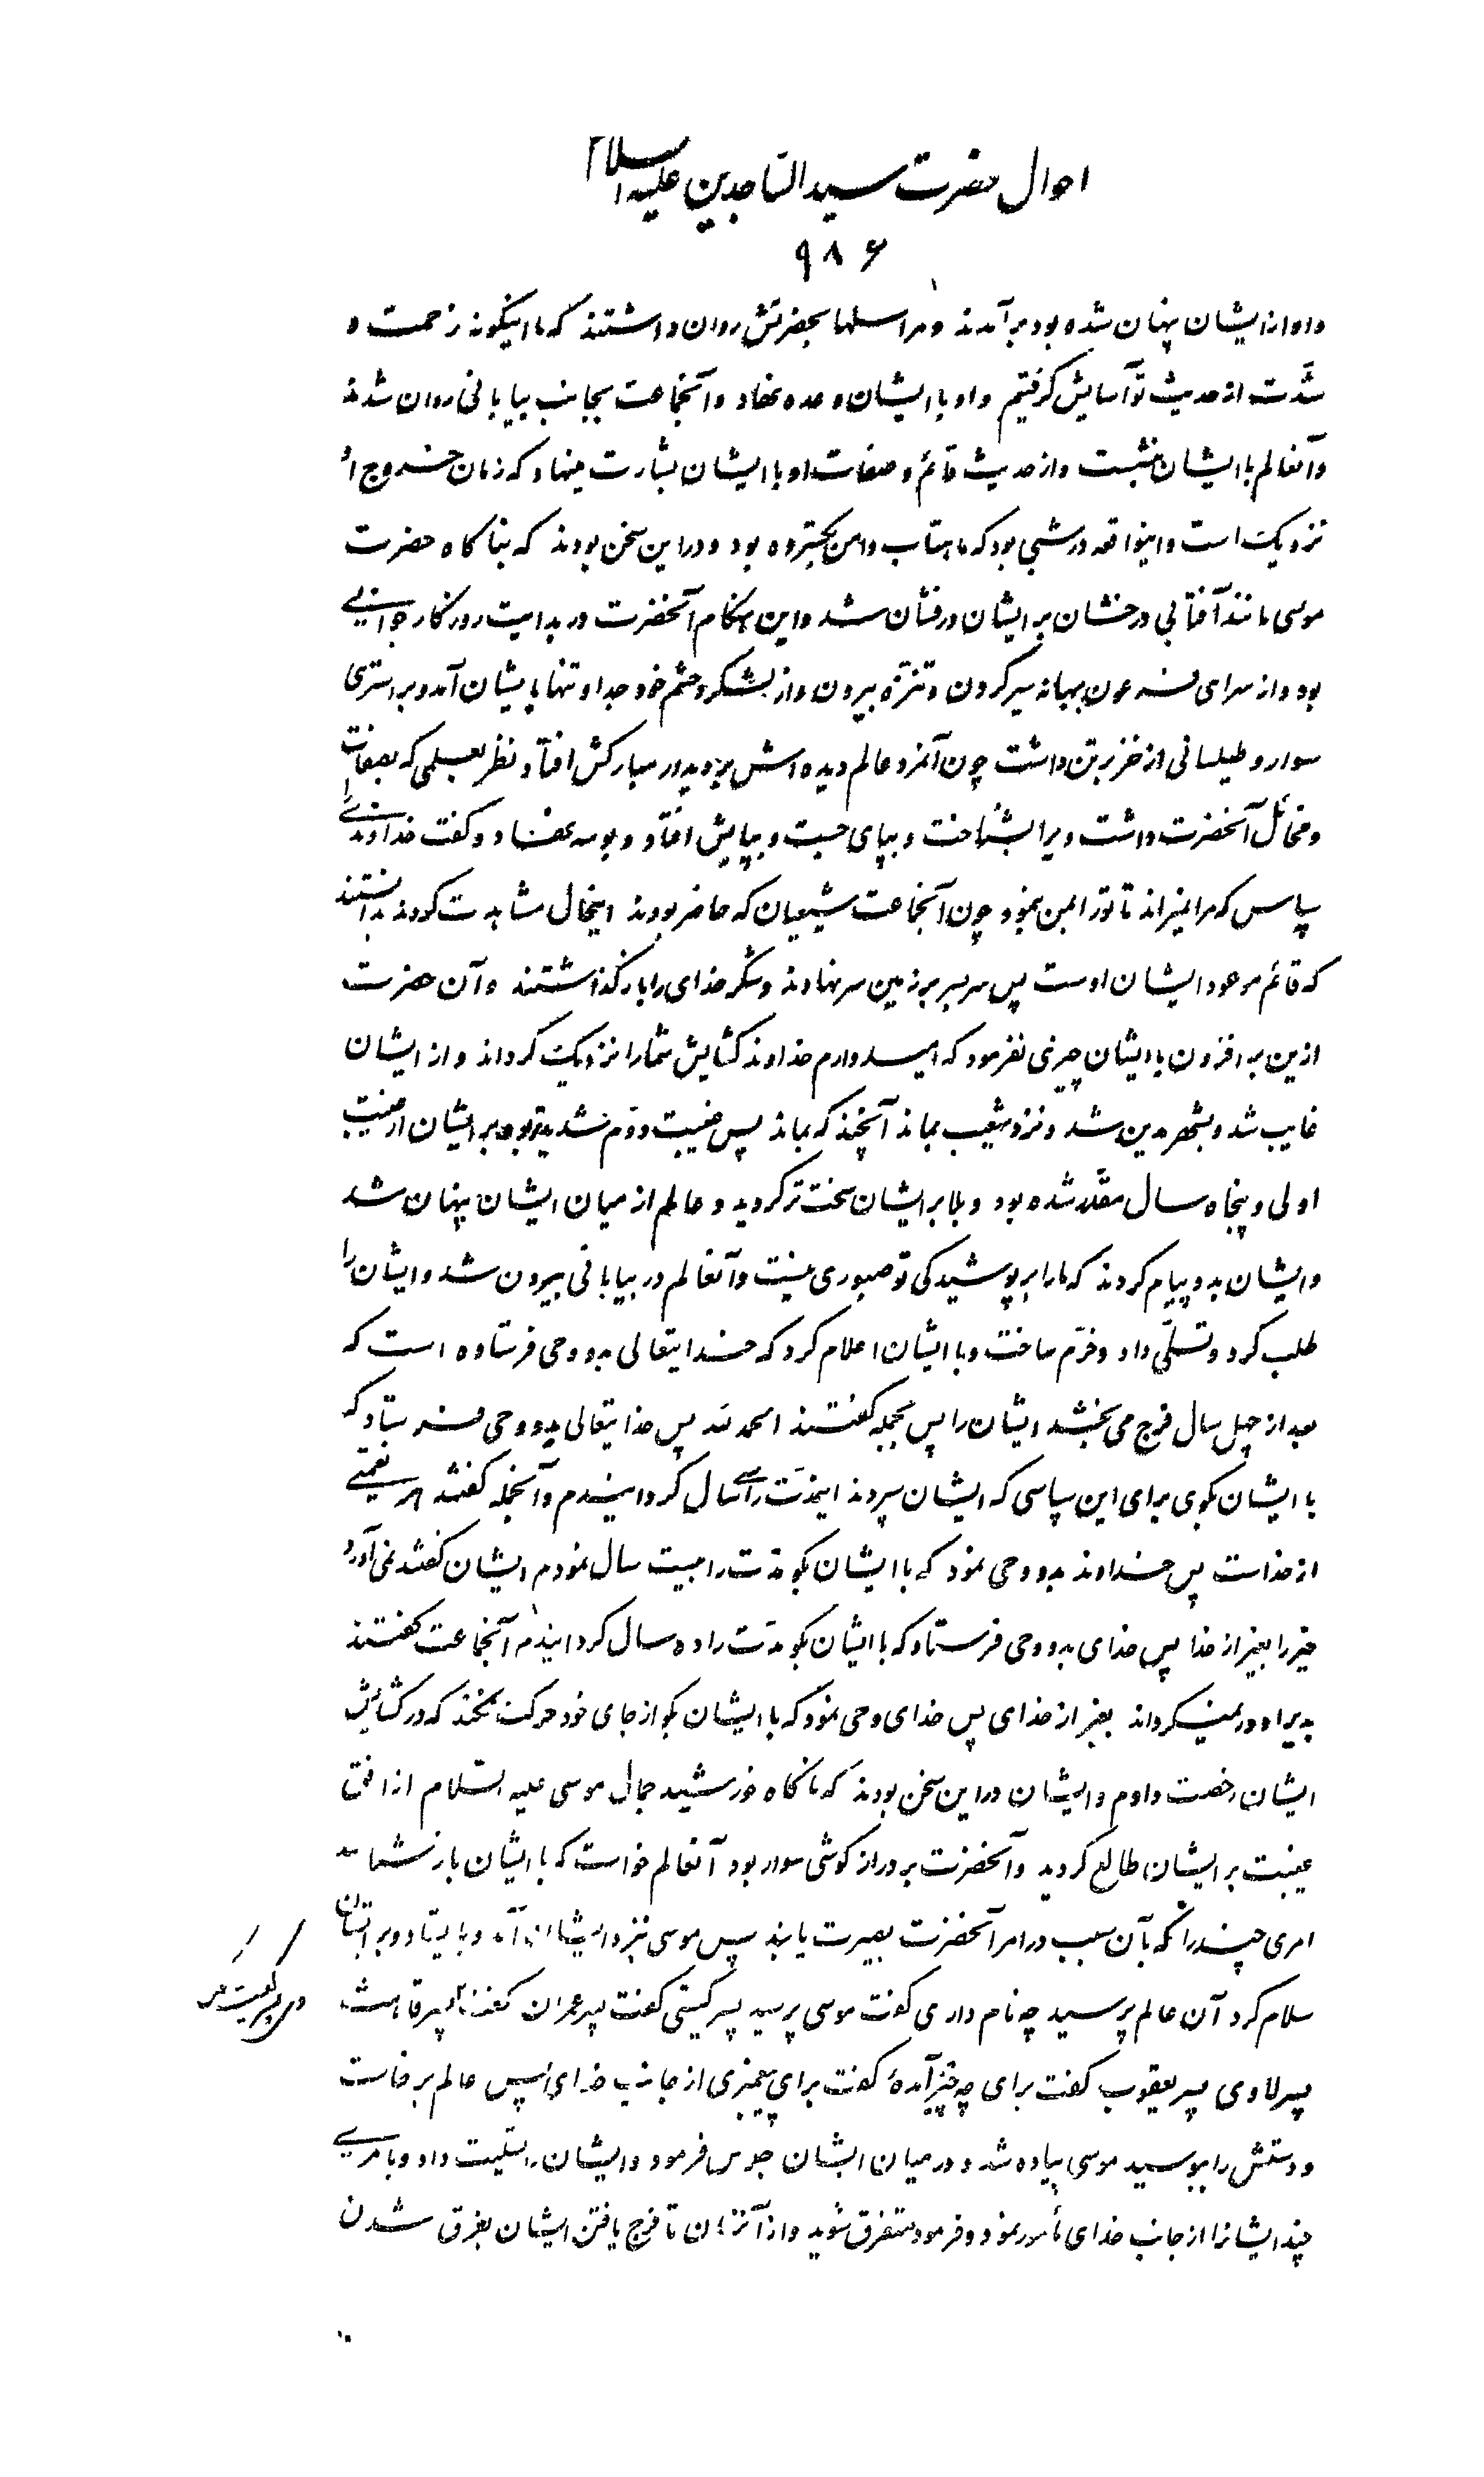 احوال حضرت سید الساجدین علیه السلام
۹۸۶
و او از ایشان پنهان شده بود برآمدند و مراسلها بحضرتش روان داشتند که ما اینگونه زحمت و
شدّت از حدیث تو آسایش گرفتیم و او با ایشان وعده نهاد و آنجماعت بجانب بیابانی روان شدند
و آنعالم با ایشان بنشست و از حدیث قائم و صفات او با ایشان بشارت مینهاد که زمان خروج او
نزدیک است و اینواقعه در شبی بود که ماهتاب دامن بگسترده بود و در این سخن بودند که بناگاه حضرت
موسی مانند آفتابی درخشان بر ایشان درفشان شد و این هنگام آنحضرت در بدایت روزگار جوانی
بود و از سرای فرعون ببهانه سیر کردن و تنزّه بیرون و از لشکر و حشم خود جدا و تنها بایشان آمد و بر استری
سوار و طیلسانی از خز بر تن داشت چون آنمرد عالم دیده اش بر دیدار مبارکش افتاد نظر بعلمی که بصفات
و مخائل آنحضرت داشت ویرا بشناخت و بپای جست و بپایش افتاد و بوسه نهاد و گفت خداوند را
سپاس که مرا نمیراند تا تو را بمن نمود چون آنجماعت شیعیان که حاضر بودند اینحال مشاهدت کردند بدانستند
که قائم موعود ایشان اوست پس سر بسر بر زمین سر نهادند و شکر خدای را بار گذاشتند و آن حضرت
ازین بر افزون با ایشان چیزی نفرمود که امیدوارم خداوند گشایش شما را نزدیک گرداند و از ایشان
غایب شد و بشهر مدین شد و نزد شعیب بماند آنچند که بماند پس غیبت دوّم شدیدتر بود بر ایشان از غیبت
اولی و پنجاه سال مقدّر شده بود و بلا بر ایشان سخت تر گردید و عالم از میان ایشان پنهان شد
و ایشان بدو پیام کردند که ما را بر پوشیدگی تو صبوری نیست و آنعالم در بیابانی بیرون شد و ایشان را
طلب کرد و تسلّی داد و خرّم ساخت و با ایشان اعلام کرد که خدایتعالی بدو وحی فرستاده است که
بعد از چهل سال فرج می بخشد ایشان را پس بجمله گفتند الحمد لله پس خدایتعالی بدو وحی فرستاد که
با ایشان بگوی برای این سپاسی که ایشان سپردند اینمدّت را سی سال گردانیدم و آنجمله گفتند هر نعمتی
از خداست پس خداوند بدو وحی نمود که با ایشان بگو مدّت را بیست سال نمودم ایشان گفتند نمی آورد
خیر را بغیر از خدا پس خدای بدو وحی فرستاد که با ایشان بگو مدّت را ده سال گردانیدم آنجماعت گفتند
بدیرا دور نمیگرداند بغیر از خدای پس خدای وحی نمود که با ایشان بگو از جای خود حرکت نکنند که در گشایش
ایشان رخصت دادم و ایشان در این سخن بودند که ناگاه خورشید جمال موسی علیه السّلام از افق
غیبت بر ایشان طالع گردید و آنحضرت بر دراز گوشی سوار بود آنعالم خواست که با ایشان باز شناسد
امری چند را که بآن سبب در امر آنحضرت بصیرت یابند پس موسی نزد ایشان آمد و بایستاد و بر ایشان
سلام کرد آن عالم پرسید چه نام داری گفت موسی پرسید پسر کیستی گفت پسر عمران گفت او پسر قاهث
پسر لاوی پسر یعقوب گفت برای چه چیز آمدهٔ گفت برای پیغمبری از جانب خدای پس عالم برخاست
و دستش را ببوسید موسی پیاده شد و در میان ایشان جلوس فرمود و ایشان را تسلیت داد و بامری
چند ایشانرا از جانب خدای مأمور نمود و فرمود متفرق شوید و از آنزمان تا فرج یافتن ایشان بغرق شدن